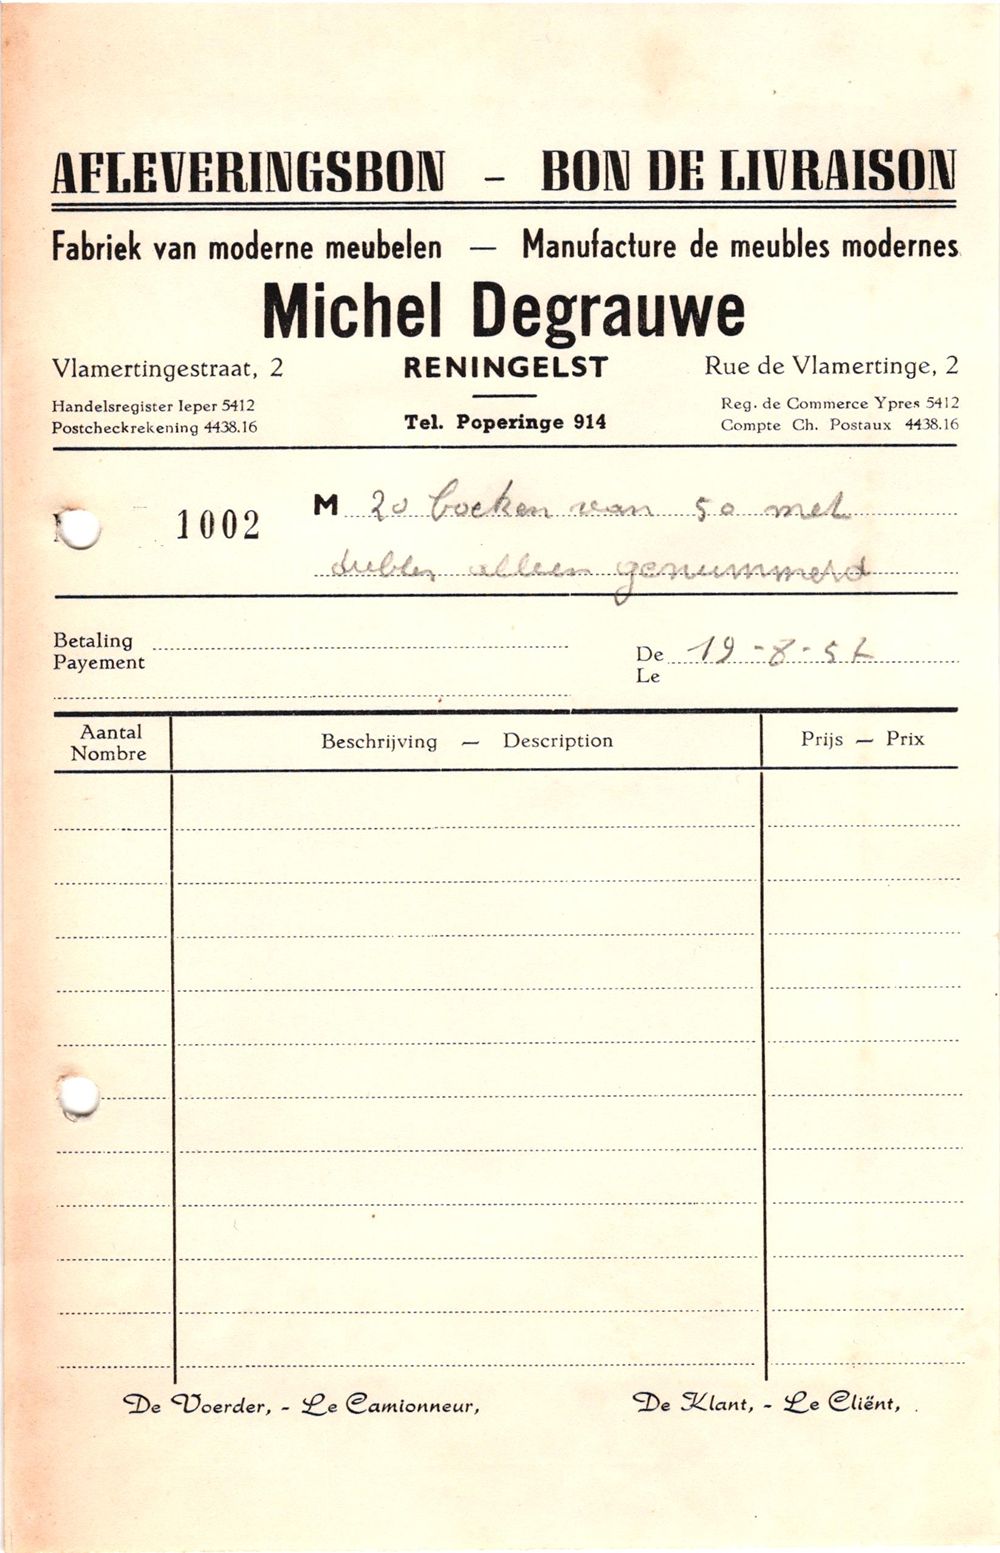 AFLEVERINGSBON - BON DE LIVRAISON
Fabriek van moderne meubelen — Manufacture de meubles modernes
Michel Degrauwe
Vlamertingestraat, 2 RENINGELST Rue de Vlamertinge, 2
Handelsregister Ieper 5412 Reg. de Commerce Ypres 5412
Postcheckrekening 4438.16 Tel. Poperinge 914 Compte Ch. Postaux 4438.16
1002 M 20 boeken van 50 met
dubbles alleen genummerd
Betaling
Payement
De 19-8-57
Le
Aantal
Nombre
Beschrijving — Description
Prijs — Prix
De Voerder, - Le Camionneur, De Klant, - Le Cliënt,